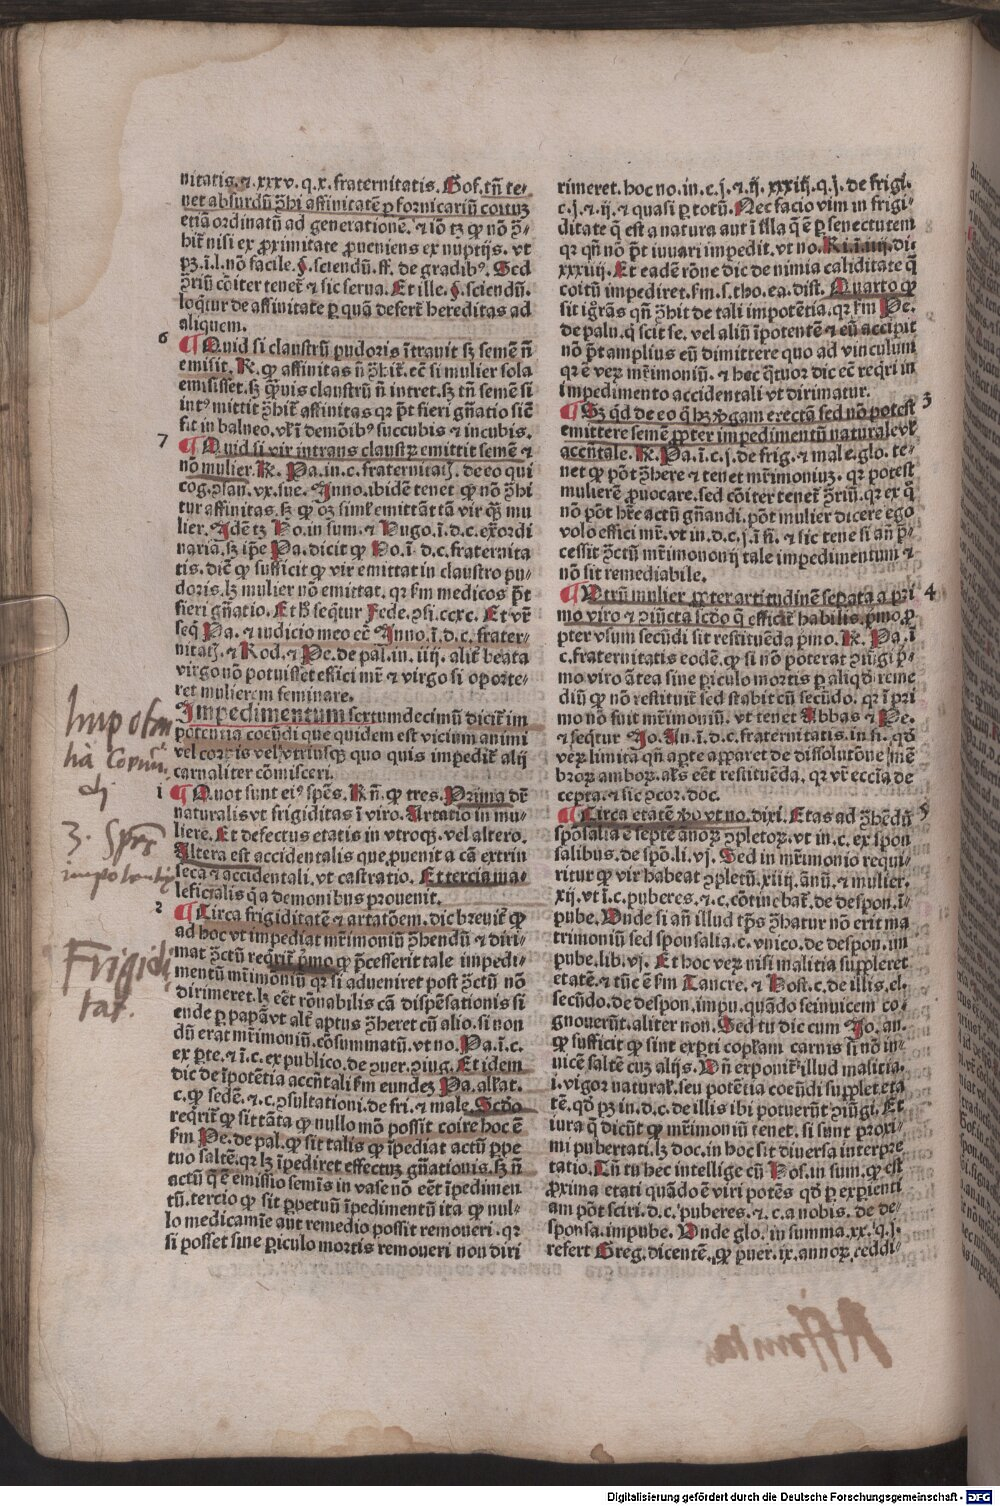 nitatis. ⁊ .xxxv. q. x. fraternitatis. Gof. tñ te-
net absurdũ ꝓhi affinitatẽ ꝑ fornicariũ coituꝫ
etiã ordinatũ ad generationẽ. ⁊ iõ tꝫ ꝙ nõ ꝓ-
hit̃ nisi ex ꝓximitate ꝓueniens ex nuptijs. vt
pꝫ. ĩ. l. nõ facile. §. sciendũ. ff. de gradib⁹. Sed
ꝯriũ cõiter tenet̃ ⁊ sic serua. Et ille. §. sciendũ.
loq̃tur de affinitate ꝑ quã defert̃ hereditas ad
aliquem.
6 ¶ Quid si claustrũ pudoris ĩtrauit sꝫ semẽ ñ
emisit. R̃. ꝙ affinitas ñ ꝯhit̃. etẽ si mulier sola
emisisset. sꝫ q̃uis claustrũ ñ intret. sꝫ tñ semẽ si
int⁹ mittit ꝯhit̃ affinitas qꝛ p̃t fieri gñatio siẽ
fit in balneo. vl̃ ĩ demõib⁹ succubis ⁊ incubis.
7 ¶ Quid si vir intrans claustꝝ emittit semẽ ⁊
nõ mulier. R̃. Pa. in. c. fraternitatꝭ. de eo qui
cog. ꝯsan. vx. sue. Inno. ibidẽ tenet ꝙ nõ ꝯhi
tur affinitas. sꝫ ꝙ oꝫ siml̃ emittãt tã vir qꝫ mu
lier. Idẽ tꝫ Ho. in sum. ⁊ Hugo. ĩ. d. c. ex̃ordi
naria. sꝫ ip̃e Pa. dicit ꝙ Ho. ĩ. d. c. fraternita
tis. diẽ ꝙ sufficit ꝙ vir emittat in claustro pu-
doris. lꝫ mulier nõ emittat. qꝛ ẜm medicos p̃t
fieri gñatio. Et h̃ seq̃tur Fede. ꝯsi. ccxc. Et vr̃
seq̃ Pa. ⁊ iudicio meo etẽ Inno. ĩ. d. c. frater-
nitatꝭ. ⁊ Rod. ⁊ Pe. de pal. in. iiij. alit̃ beata
virgo nõ potuisset effici mr̃ ⁊ virgo si oporte-
ret mulierem seminare.
Impedimentum sextumdecimũ dicit̃ im
potentia coeũdi que quidem est vicium animi
vel corpis vel vtriusqꝫ quo quis impedit̃ alij
carnaliter cõmisceri.
1 ¶ Quot sunt ei⁹ spẽs. R̃ñ. ꝙ tres. Prima dr̃
naturalis vt frigiditas ĩ viro. Artatio in mu-
liere. Et defectus etatis in vtroqꝫ. vel altero.
Altera est accidentalis que ꝓuenit a cã extrin
seca ⁊ accidentali. vt castratio. Et tercia ma-
leficialis q̃ a demonibus prouenit.
2 ¶ Circa frigiditatẽ ⁊ artatõem. dic breuit̃ ꝙ
ad hoc vt impediat mr̃imoniũ ꝯhendũ ⁊ diri-
mat ꝯctũ req̃rit̃ p̃mo ꝙ p̃cesserit tale impedi-
mentũ mr̃imoniũ qꝛ si adueniret post ꝯctũ nõ
dirimeret. lꝫ eẽt rõnabilis cã dispẽsationis si
ende ꝑ papã vt alt̃ aptus ꝯheret cũ alio. si non
dũ erat mr̃imoniũ. cõsummatũ. vt no. Pa. ĩ. c.
ex ꝑte. ⁊ ĩ. c. ex publico. de ꝯuer. ꝯiug. Et idem
dic de ĩpotẽtia accñtali ẜm eundeꝫ Pa. alkat.
c. ꝙ sedẽ. ⁊ c. ꝯsultationi. de fri. ⁊ male. Scd̃o
req̃rit̃ ꝙ sit tãta ꝙ nullo mõ possit coire hoc ẽ
ẜm Pe. de pal. ꝙ sit talis ꝙ ĩpediat actũ ꝑpe
tuo saltẽ. qꝛ lꝫ ĩpediret effectuꝫ gñationis. sꝫ ñ
actũ q̃ ẽ emissio semĩs in vase nõ eẽt ĩpedimen
tũ. tercio ꝙ sit ꝑpetuũ ĩpedimentũ ita ꝙ nul-
lo medicamĩe aut remedio possit remoueri. qꝛ
si posset sine ꝑiculo mortis remoueri non diri
rimeret. hoc no. in. c. j. ⁊. ij. xxxiij. q. j. de frigi.
c. j. ⁊. ij. ⁊ quasi ꝑ totũ. Nec facio vim in frigi-
ditate q̃ est a natura aut ĩ illa q̃ ẽ ꝑ senectutem
qꝛ qñ nõ p̃t iuuari impedit. vt no. Ri. ĩ. iiij. di.
xxxiiij. Et eadẽ rõne dic de nimia caliditate q̃
coitũ impediret. ẜm. s. tho. ea. dist. Quarto ꝙ
sit igñrãs qñ ꝯhit de tali impotẽtia. qꝛ ẜm Pe.
de palu. q̃ scit se. vel aliũ ĩpotentẽ ⁊ eũ accipit
nõ p̃t amplius eũ dimittere quo ad vinculum
qꝛ ẽ verꝝ mr̃imoniũ. ⁊ hec q̃tuor dic eẽ req̃ri in
impedimento accidentali vt dirimatur.
¶ Sꝫ qd̃ de eo q̃ hꝫ ꝟgam erectã sed nõ potest 3
emittere semẽ ꝓpter impedimentũ naturale vl̃
accñtale. R̃. Pa. ĩ. c. j. de frig. ⁊ male. glo. te-
net ꝙ põt ꝯhere ⁊ tenet mr̃imoniuꝫ. qꝛ potest
mulierẽ ꝓuocare. sed cõiter tenet̃ ꝯriũ. qꝛ ex q̃
nõ põt hr̃e actũ gñandi. põt mulier dicere ego
volo effici mr̃. vt in. d. c. j. ĩ fi. ⁊ sic tene si añ p̃-
cessit ꝯctũ mr̃imononij tale impedimentum ⁊
nõ sit remediabile.
¶ Vtrũ mulier ꝓpter artitudinẽ seꝑata a pri 4
mo viro ⁊ ꝯiũcta scd̃o q̃ efficit̃ habilis. p̃mo. ꝓ
pter vsum secũdi sit restituẽda p̃mo. R̃. Pa. ĩ
c. fraternitatis eodẽ. ꝙ si nõ poterat ꝯiũgi p̃-
mo viro ãtea sine ꝑiculo mortis ꝑ aliqd̃ reme
diũ ꝙ nõ restituit̃ sed stabit cũ secũdo. qꝛ ĩ pri
mo nõ fuit mr̃imoniũ. vt tenet Abbas ⁊ Pe.
⁊ seq̃tur Jo. An. ĩ. d. c. fraternitatis. in fi. qd̃
verꝝ limita qñ aꝑte apparet de dissolutõne mẽ
broꝝ amboꝝ. al̃s eẽt restituẽda. qꝛ vr̃ eccĩa de
cepta. ⁊ sic ꝯcor. doc.
¶ Circa etatẽ ꝟo vt no. diri. Etas ad ꝯhẽdũ 5
spõsalia ẽ septẽ anoꝝ ꝯpletoꝝ. vt in. c. ex spon
salibus. de spõ. li. vj. Sed in mr̃imonio requi-
ritur ꝙ vir habeat ꝯpletũ. xiiij. ãnũ. ⁊ mulier.
xij. vt ĩ. c. puberes. ⁊. c. cõtinebat̃. de despon. ĩ-
pube. Unde si añ illud tp̃s ꝯhatur nõ erit ma
trimoniũ sed sponsalia. c. vnico. de despon. im
pube. lib. vj. Et hoc verꝝ nisi malitia suppleret
etatẽ. ⁊ tũc ẽ ẜm Tancre. ⁊ Host. c. de illis. el.
secũdo. de despon. impu. quãdo seinuicem co-
gnouerũt. aliter non. Sed tu dic cum Jo. an.
ꝙ sufficit ꝙ sint exꝑti copl̃am carnis si nõ in-
uicẽ saltẽ cuꝫ alijs. Uñ exponit̃ illud malitia.
i. vigoꝛ natural̃. seu potẽtia coeũdi supplet eta
tẽ. qd̃ pꝫ in. d. c. de illis ibi potuerũt ꝯiũgi. Et
iura q̃ dicũt ꝙ mr̃imoniũ tenet. si sunt proxi-
mi pubertati. lꝫ doc. in hoc sit diuersa interpre
tatio. Tñ tu hec intellige cũ Hos. in sum. ꝙ est
ꝓxima etati quãdo ẽ viri potẽs qd̃ ꝑ exꝑienti
am põt sciri. d. c. puberes. ⁊. c. a nobis. de de-
sponsa. impube. Unde glo. in summa. xx. q. j.
refert Greg. dicentẽ. ꝙ puer. ix. annoꝝ. reddi-
Impoten
tia Coeun
dj
3. Spẽs
impotentie
Frigidi
tas.
Digitalisierung gefördert durch die Deutsche Forschungsgemeinschaft - DFG